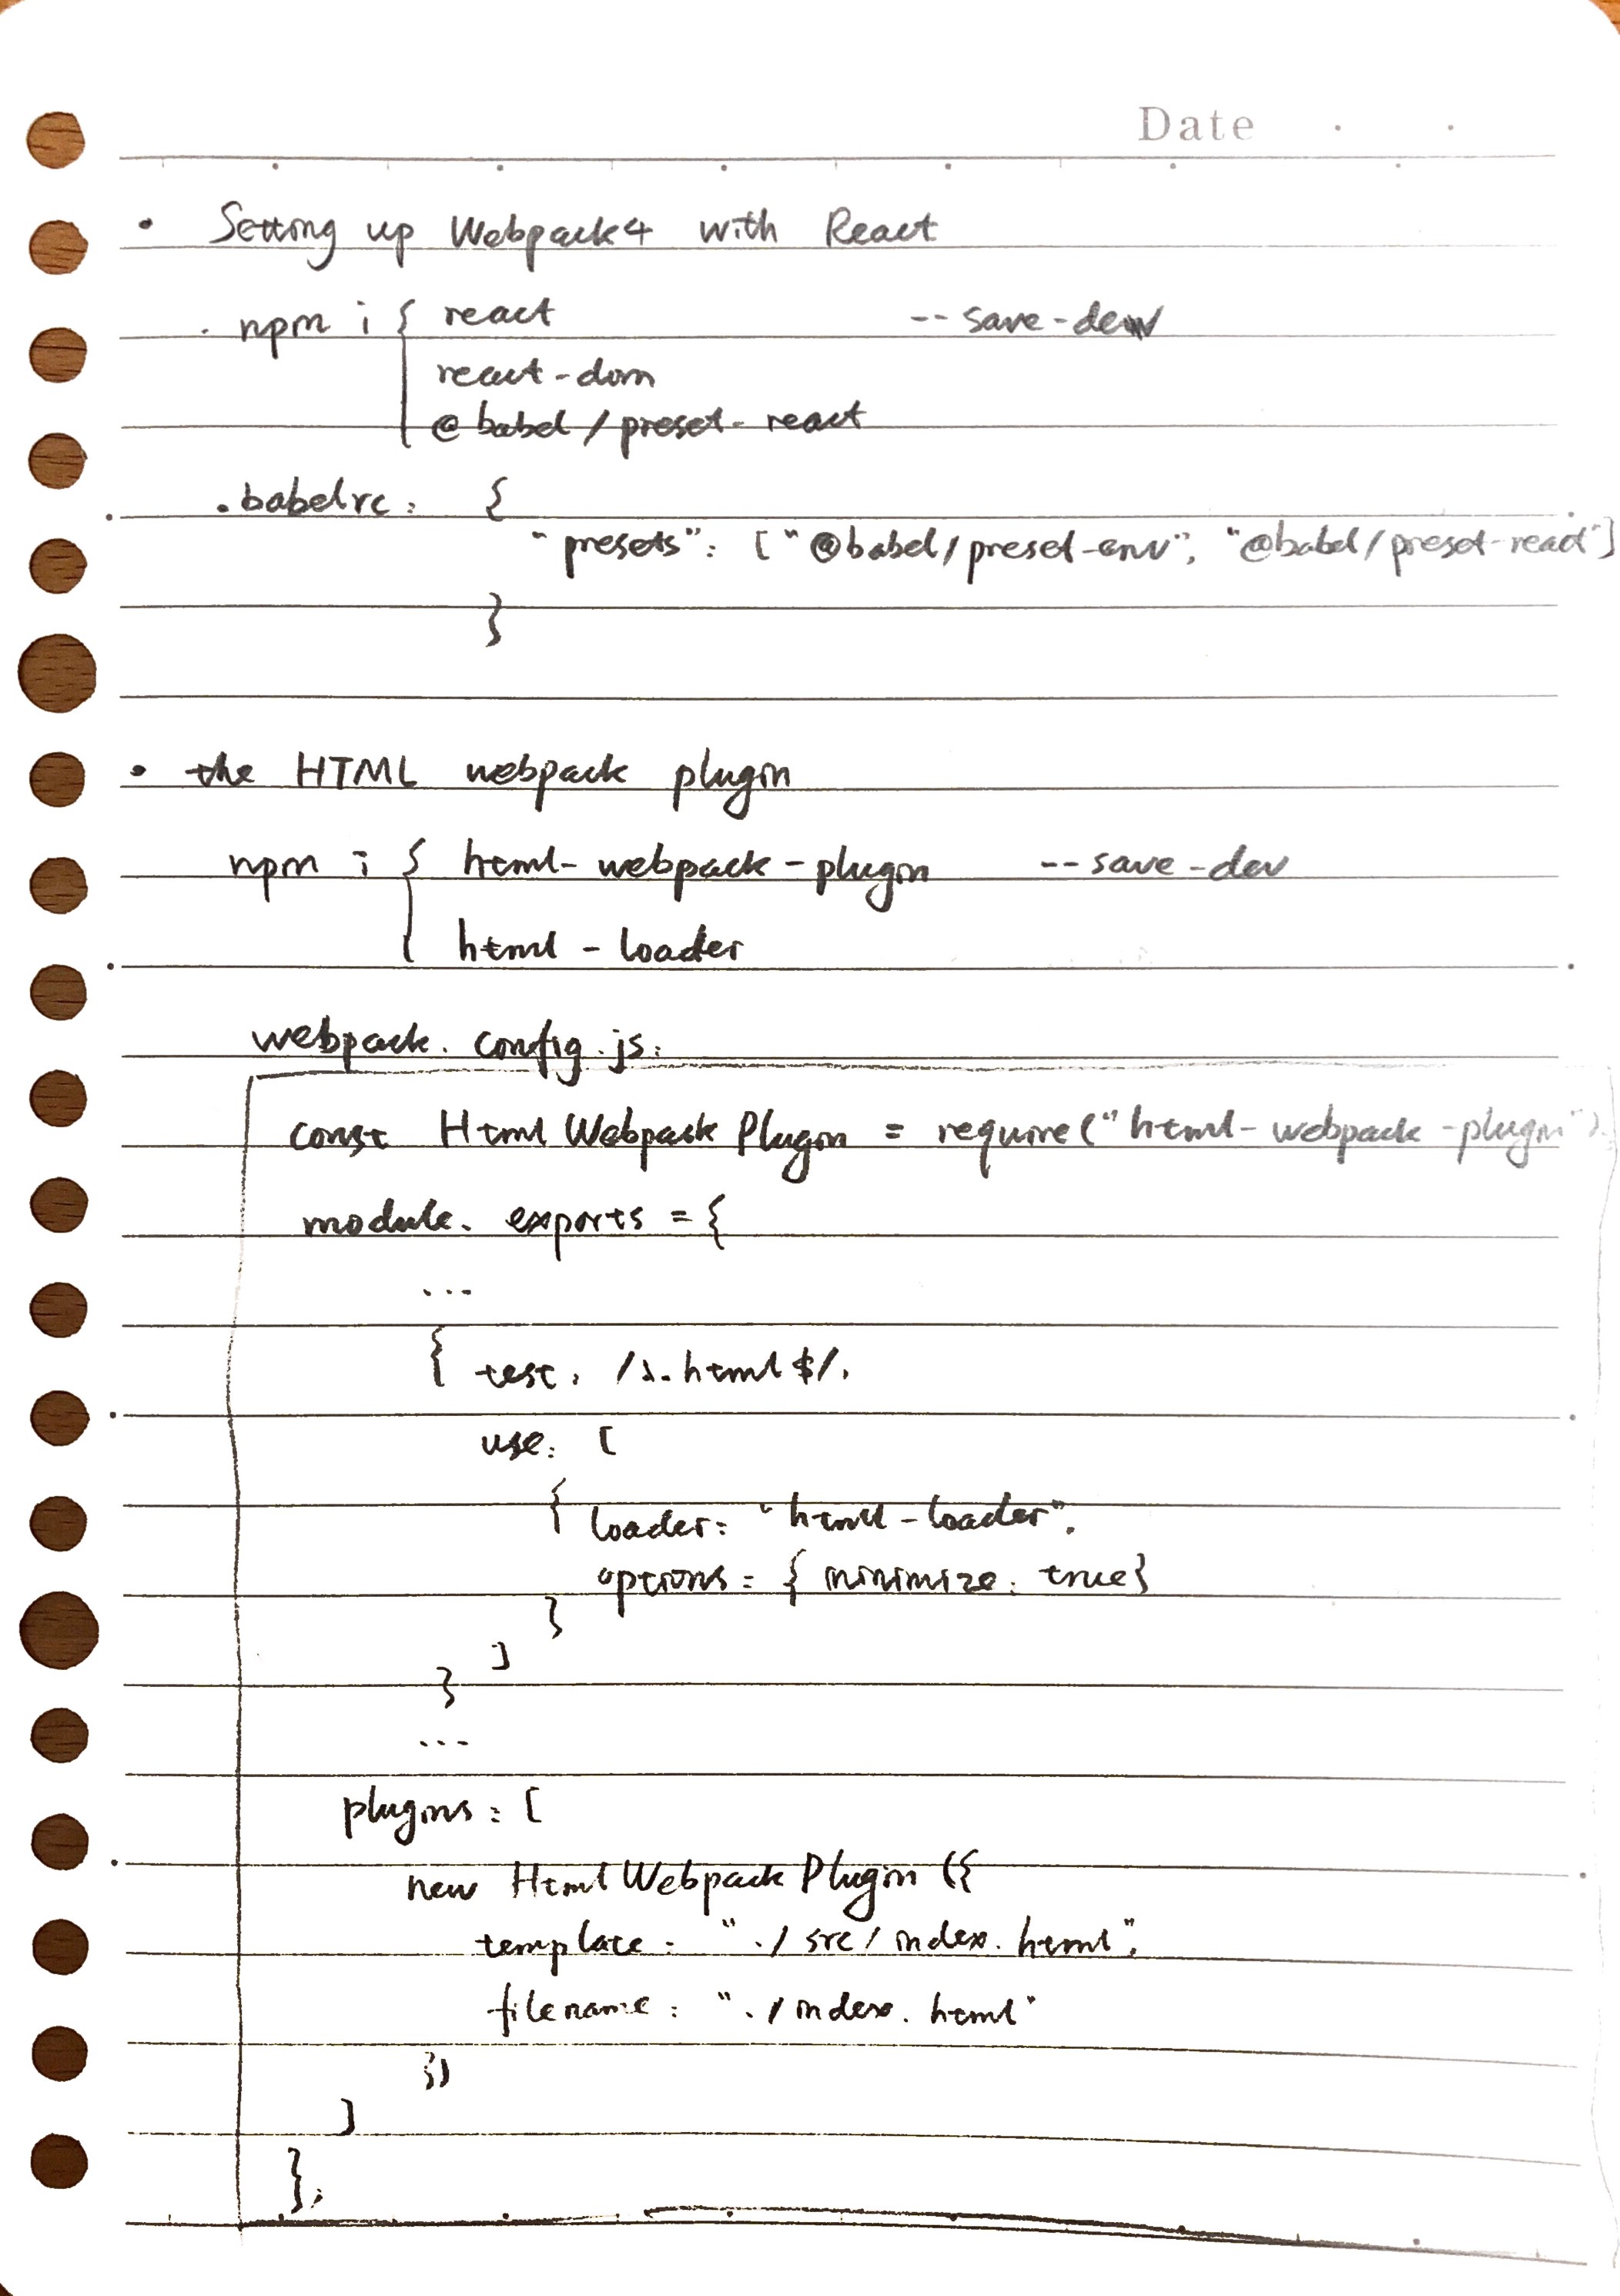 Date . .
• Setting up Webpack4 with React
. npm i { react --save-dev
react-dom
@babel/preset-react
.babelrc: {
"presets": ["@babel/preset-env", "@babel/preset-react"]
}
• the HTML webpack plugin
npm i { html-webpack-plugin --save-dev
html-loader
webpack.config.js:
const HtmlWebpackPlugin = require("html-webpack-plugin");
module.exports = {
...
{ test: /\.html$/,
use: [
{ loader: "html-loader",
options: { minimize: true}
}
]
}
...
plugins: [
new HtmlWebpackPlugin({
template: "./src/index.html",
filename: "./index.html"
})
]
};